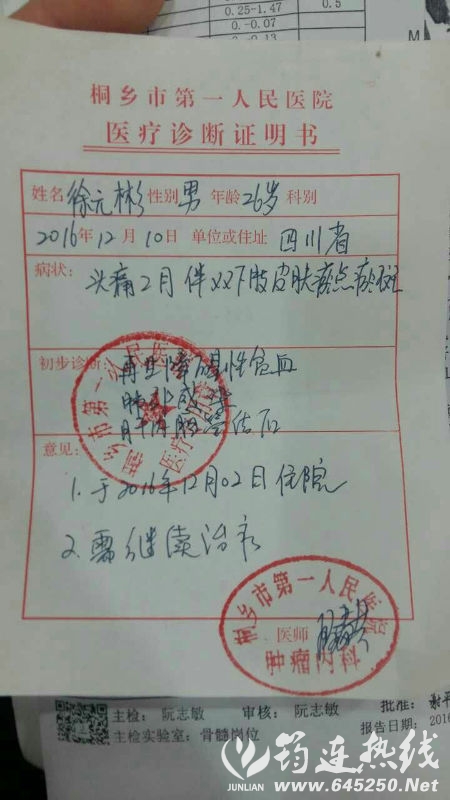 0.25-1.47
0.5
0.-0.07
0.-0.13
M
桐乡市第一人民医院
医疗诊断证明书
姓名 徐元彬 性别 男 年龄 26岁 科别
2016年12月10日 单位或住址 四川省
病状: 头痛2月伴双下肢皮肤瘀点瘀斑
初步诊断: 再生障碍性贫血
肺部感染
肝内胆管结石
意见:
1.于2016年12月02日住院
2.需继续治疗
桐乡市第一人民医院
医师
肿瘤内科
主检: 阮志敏 审核: 阮志敏 批准:
主检实验室: 骨髓岗位 报告日期: 2016
筠连热线
JUNLIAN www.645250.Net